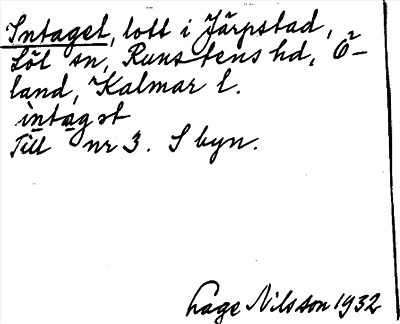 Intaget, lott i Järpstad,
Löt sn, Runstens hd, Ö-
land, Kalmar l.
intagət
Till nr 3. I byn.
Lage Nilsson 1932